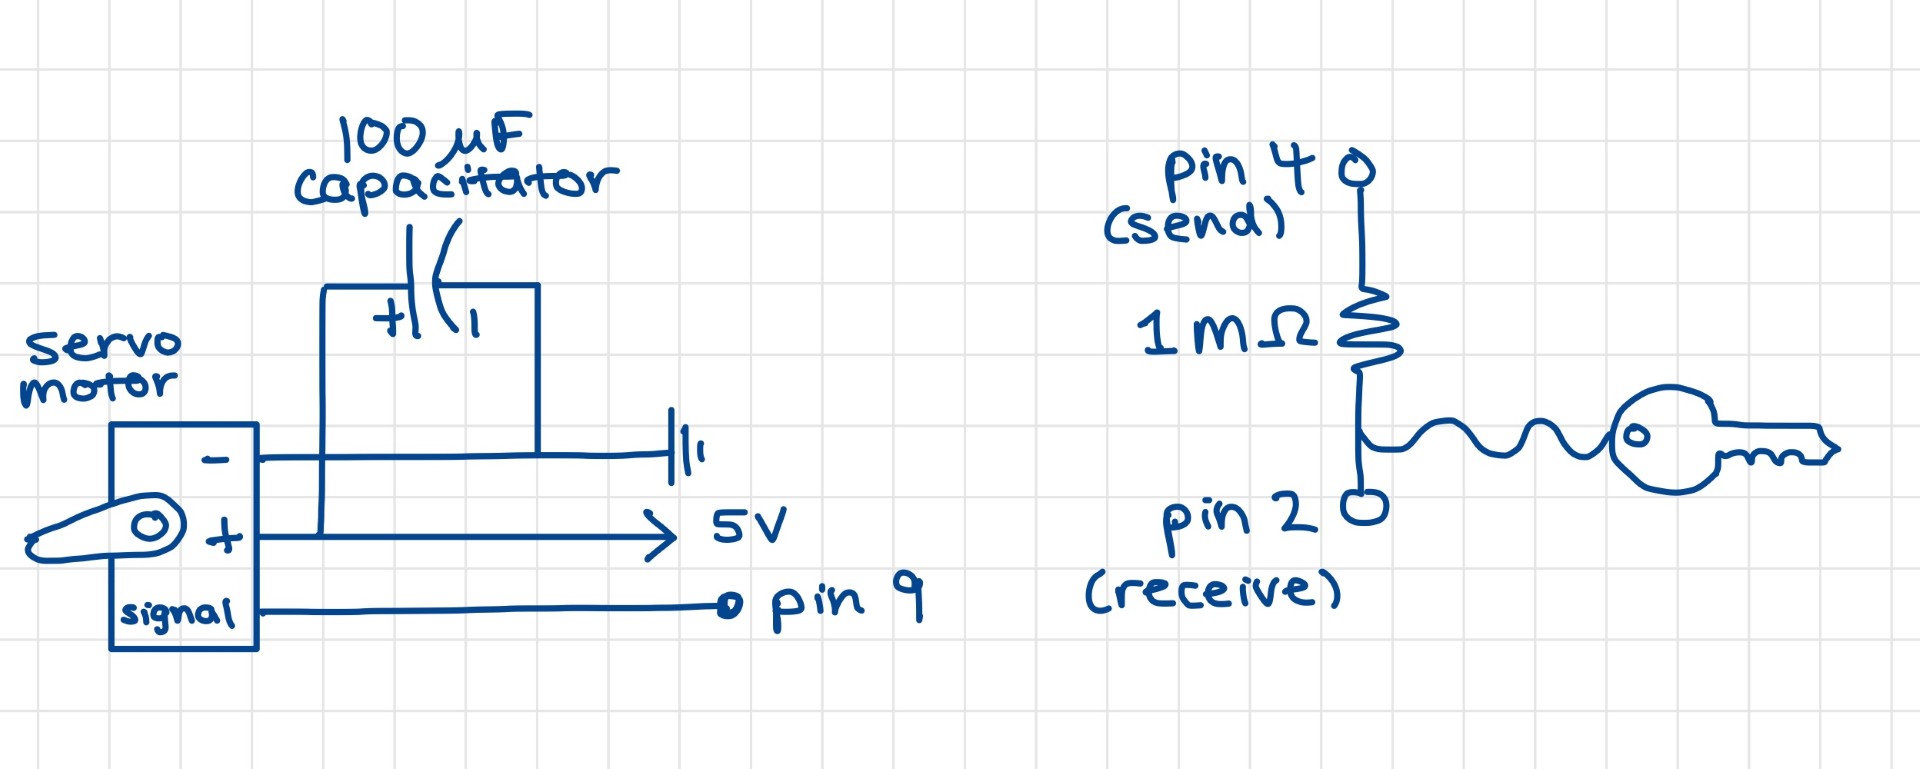 100 µF
capacitator
+ |
servo
motor
-
+
5V
signal
pin 9
pin 4
(send)
1mΩ
pin 2
(receive)